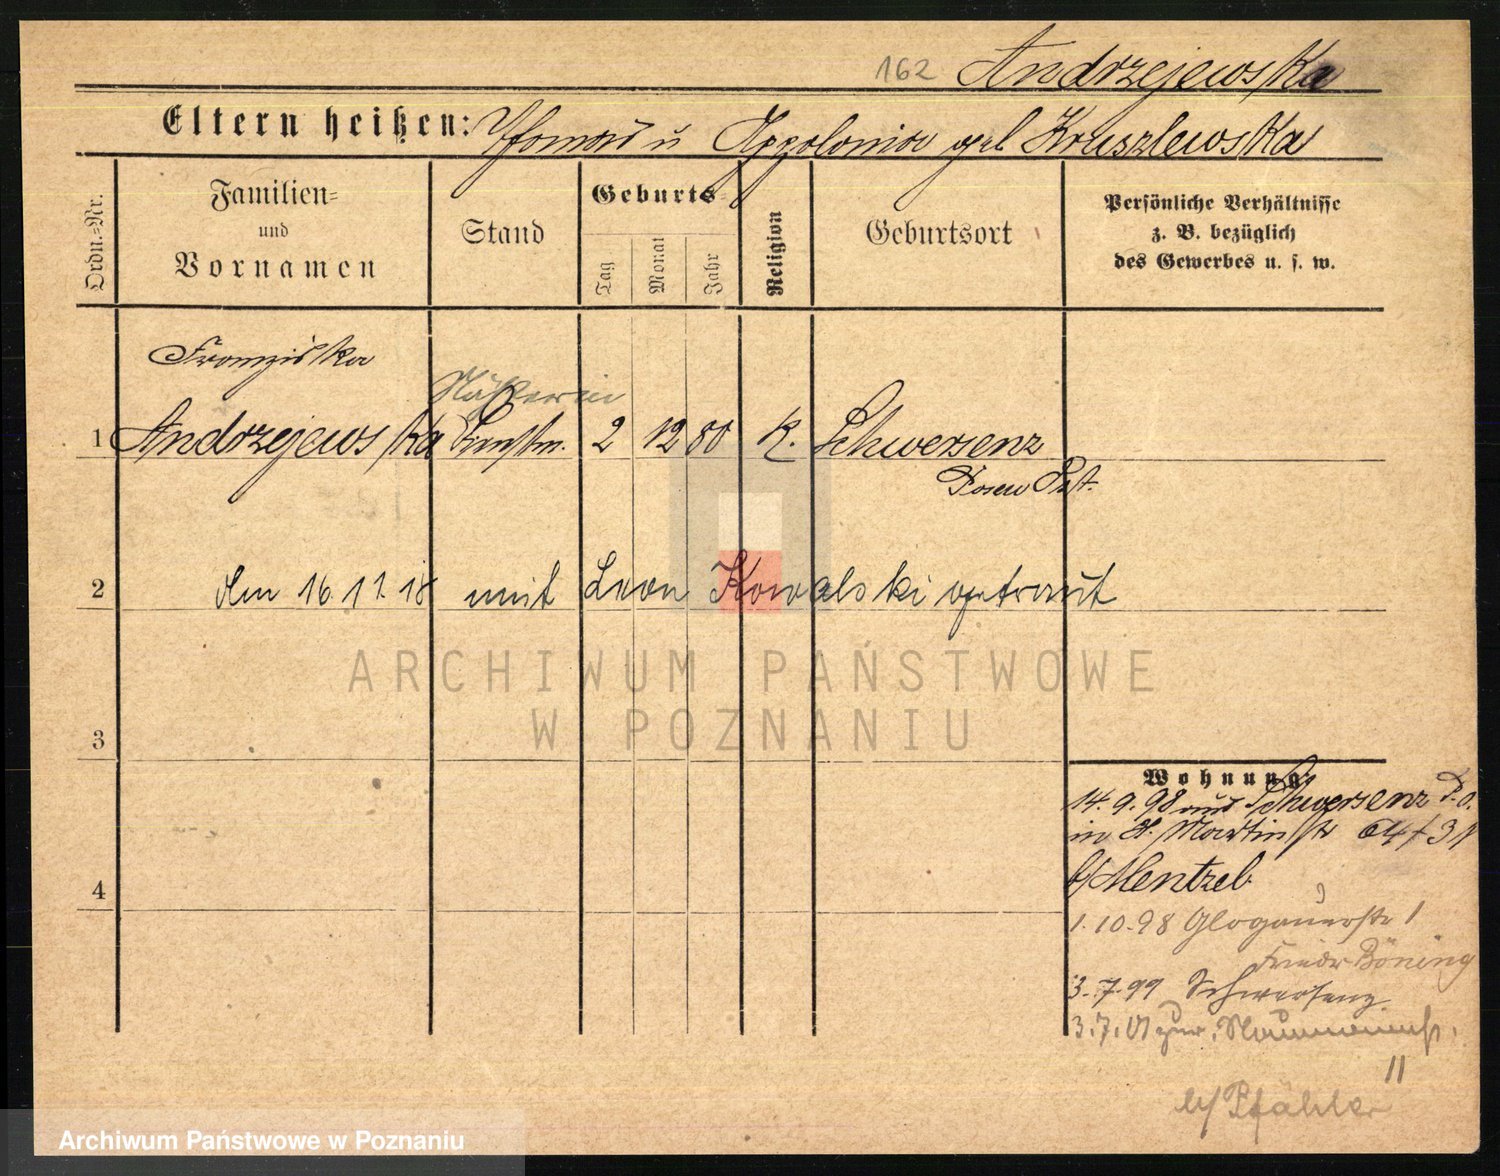 162 Andrzejewska
Eltern heißen: Thomas u Appolonia geb Kruszlewska
Ordn.=Nr.
Familien=
und
Vornamen
Stand
Geburts=
Tag
Monat
Jahr
Religion
Geburtsort
Persönliche Verhältnisse
z. B. bezüglich
des Gewerbes u. s. w.
Franziska
Näherin
1 Andrzejewska Dienstm. 2 12 80 K. Schwersenz
Posen Ost.
2 Am 16 11. 18 mit Leon Kowalski getraut
ARCHIWUM PAŃSTWOWE
W POZNANIU
3
Wohnung
14. 9. 98 aus Schwersenz P. O.
in St. Martinstr 64/31
b/ Mentzel
4
1. 10. 98 Glogauerstr 1
Friedr Böning
3. 7. 99 Schwersenz
3. 7. 01 zur. Naumannstr.
11
b/ Pfähler
Archiwum Państwowe w Poznaniu